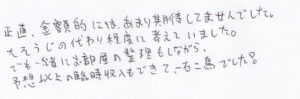 正直、金額的には、あまり期待してませんでした。
大そうじの代わり程度に考えていました。
でも一緒にお部屋の整理もしながら、
予想以上の臨時収入もできて、一石二鳥でした!